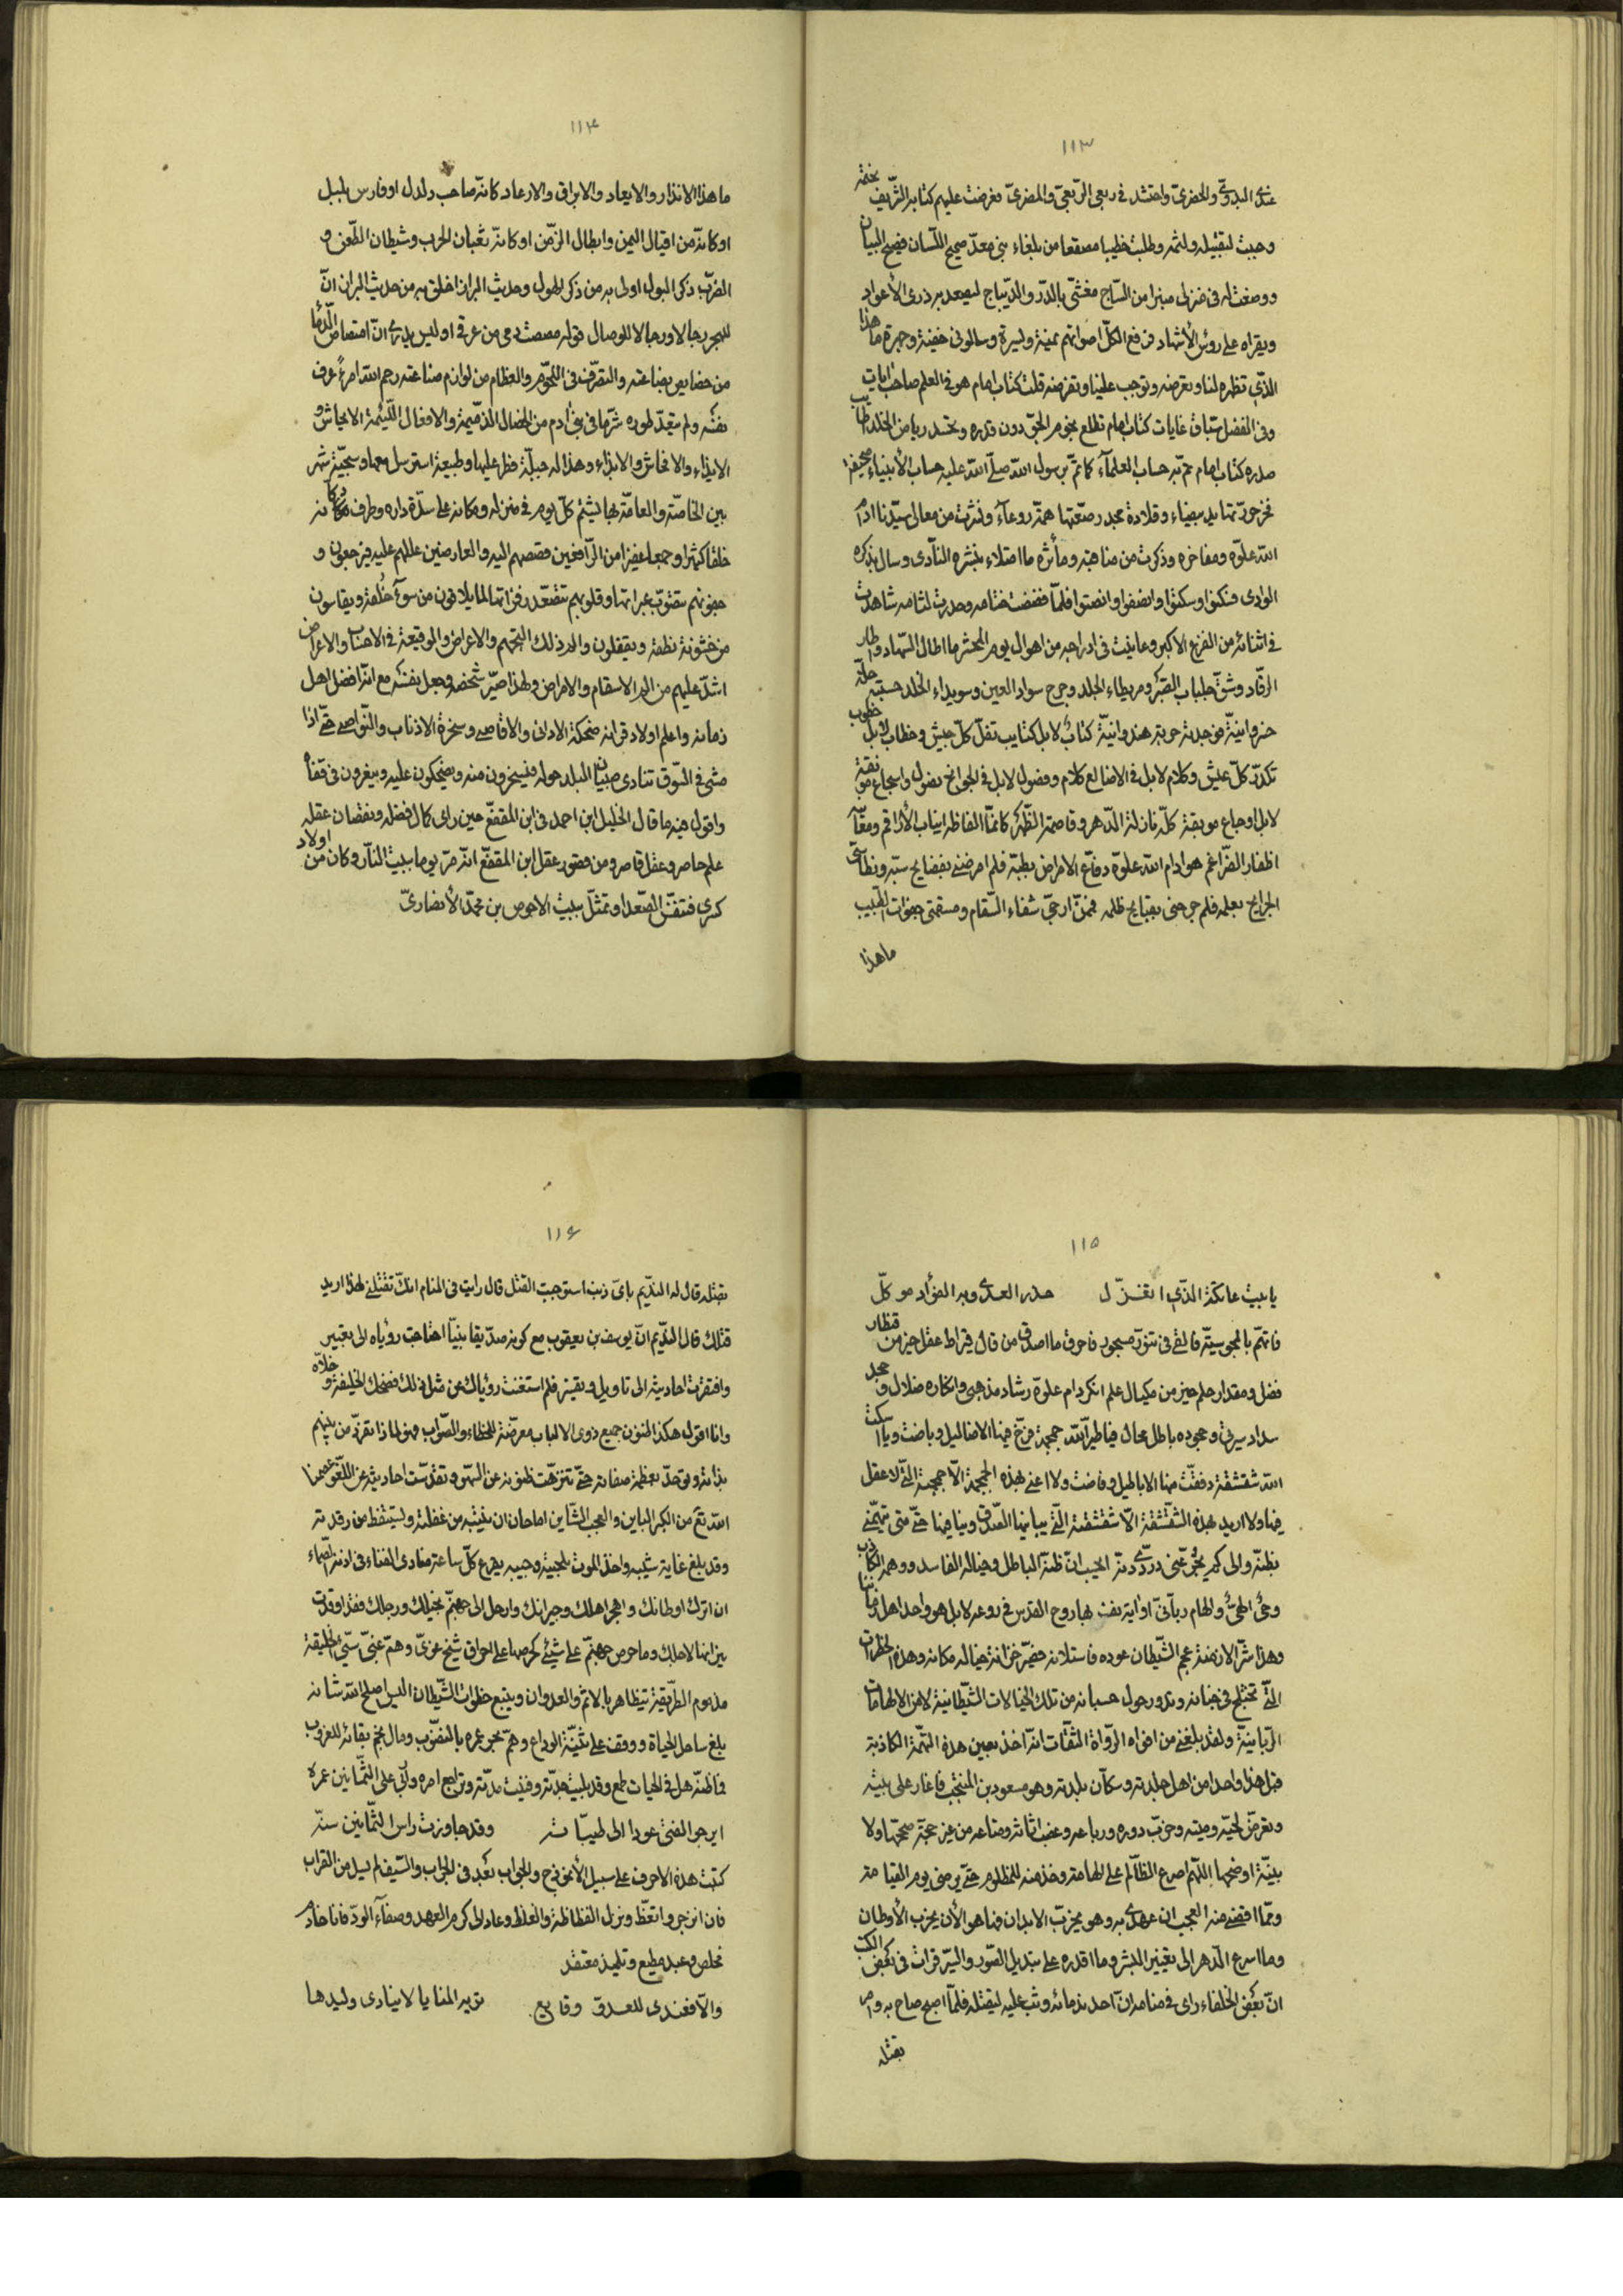 ١١٣
عندى البدوىّ والحضرىّ واحتشد فى ربعى الربعىّ والمضرىّ فعرضت عليهم كتابه الشريف بختمه
وحببت لتقبيله ولثمه وطلبت خطيبا مصقعا من بلغاء بنى معدّ صحيح اللسان فصيح البيان
ووضعت له فى منزلى منبرا من الساج مغشّى بالدّر والديباج ليصعد به ذرى الأعواد
ويقراه على رؤس الأشهاد فرفع الكلّ اصواتهم يمنة ويسرة وسالونى خفية وجهرة ما هذا
الذى تظهره لنا وتعرضه وتوجب علينا وتفرضه قلت كتاب امام هو فى العلم صاحب ايات
وفى الفضل سبّاق غايات كتاب امام تطلع نجوم الحق دون قدره وتحسد رياض الخلد اطايب
صدره كتاب امام عمّ به حساب العلمآء كما تمّ برسول الله صلّى الله عليه حساب الأنبياء صحيفة
فخر حوّتها يد بيضاء وقلادة مجد رصّعتها همّة روعآء ونثرت من معالى سيّدنا ادام
الله علوّه ومفاخره وذكرت من مناقبه ومآثره ما امتلاء بنشره النادى وسال بذكره
الوادى فسكنوا وسكتوا وانصفوا وانصتوا فلمّا فضضت ختامه وحدرت لثامه شاهدت
فى اثنائه من الفزع الأكبر وعاينت فى ادراجه من اهوال يوم المحشر ما اطال السهاد واطار
الرقاد وشقّ جلباب الصبر ومريطاء الجلد وجرح سواد العين وسويداء الخلد حسبته حلّة
خسروانيّة فوجدته حربة هندوانيّة كتاب لا بل كتايب تفلّ كلّ جيش وخطاب لا بل خطوب
تكدّر كلّ عيش وكلام لا بل فى الاضالع كلام وفصول لا بل فى الجوانح نصول واسجاع مونقة
لا بل اوجاع موبقة كلّه نازلة الدهر وقاصمة الظهر كانّما الفاظه انياب الأراقم ومعانيه
اظفار الضراغم هو ادام الله علوّه دفاع الامراض بطبّه فلم امرضنى بفضايح سبّه ونطاسىّ
الجرايح بعلمه فلم جرحنى بقبايح ظلمه فممّن ارجى شفاء السقام ومسقمى جفوات الطبيب
ما هذا
١١٤
ما هذا الانذار والايعاد والابراق والارعاد كانّه صاحب دلدل او فارس بلبل
او كانّه من اقيال اليمن وابطال الزمن او كانّه ثعبان الحرب وشيطان الطعن و
الضرب ذكر البول اولى به من ذكر الهول وحديث البراز اخلق به من حديث البراز انّ
للهجر رجالا ورجالا للوصال قوله مصصت دمى من عرقى اوليس يدرى انّ امتصاص الدّما
من خصايص بضاعته والتصرّف فى اللحوم والعظام من لوازم صناعته رحم الله امرءً عرف
نفسه ولم يتعدّ طوره شرّ ما فى بنى آدم من الخصال الذميمة والافعال اللئيمة الايحاش و
الايذاء والافحاش والابذاء وهذا له جبلّة فطر عليها وطبيعة استرسل معها وسجيّة شهر
بين الخاصّة والعامّة بها يشتم كلّ يوم فى منزله ومكانه على سدّة داره وطرف دكّانه
خلقا كثيرا وجمعا غفيرا من الرافعين قصصهم اليه والعارضين عللهم عليه فيرجعون و
جفونهم تتصوّب عبراتها وقلوبهم تتصعّد زفراتها لما يلاقون من سوء خلقه ويقاسون
من خشونة نطقه ويقفلون والم ذلك التجهّم والاعراض والوقيعة فى الاحساب والاعراض
اشدّ عليهم من الم الاسقام والامراض ولهذا صيّر شخصه وجعل نفسه مع انّه افضل اهل
زمانه واعلم اولاد قرانه ضحكة الادانى والاقاصى وسخرة الاذناب والنواصى حتّى اذا
مشى فى السوق تنادى صبيان البلد حوله فيسخرون منه ويضحكون عليه ويبعرون فى قفاه
واقول فيه ما قال الخليل ابن احمد فى ابن المقفّع حين راى كمال فضله ونقصان عقله
علم حاصر وعقل قاصر ومن قصور عقل ابن المقفّع انّه مرّ يوما ببيت النار وكان من اولاد
كسرى فتنفّس الصعدا وتمثّل ببيت الاحوص بن محمّد الأنصارىّ
١١٥
يا بيت عاتكة الذى اتغزّل حذر العدى وبه الفؤاد موكّل
فاتّهم بالمجوسيّة فالقى فى تنّور مسجور فاحرق ما اصدق من قال قيراط عقل خير من قنطار
فضل ومقدار حلم خير من مكيال علم انكر دام علوّه رشاد مذهبى وانكاره ضلال وجحد
سداد سيرتى وجحوده باطل محال فيا طيّر الله جمجمة فرّخ فيها الاضاليل وباضت ويا اسكت
الله شقشقة دفقت منها الاباطيل وفاضت ولا اعنى بهذه الجمجمة الّا جمجمته التّى لا عقل
فيها ولا اريد بهذه الشقشقة الّا شقشقته التّى يباينها الصدق وينافيها حتّى متى يتّهمنى
بظنّه والى كم يجرّعنى دردىّ دنّه ايحسب انّ ظنّه الباطل وخياله الفاسد ووهمه الكاذب
وحىٌ الهىّ والهام ربّانىّ او اية نفث بها روح القدس فى روعه لا بل هو واحد اهل زماننا
وهذا شرّ الازمنة عجم الشيطان عوده فاستلانه فصيّر خزانة خياله مكانه وهذه الخطرات
التّى تختلج فى جنانه وتدور حول حسبانه من تلك الخيالات الشيطانية لا من الالهامات
الربانيّة ولقد بلغنى من افواه الرواة الثقات انّه اخذ بعين هذه التهمة الكاذبة
قبل هذا واحدا من اهل جلدته وسكّان بلدته وهو مسعود بن المنتجب فاغار على بيته
وتعرّض لحيّه وميته وخرّب دوره ورباعه وغصب اثاثه ومتاعه من غير حجّة صحّحها ولا
بيّنة اوضحها اللهم اصرع الظالم على الهامة وخذ منه للمظلوم حتّى يرضى يوم القيامة
وممّا اقضى منه العجب ان عهدى به وهو يخرّب الابدان فها هو الأن يخرّب الأوطان
وما اسرع الدهر الى تغيير البشر وما اقدره على تبديل الصور والسير قرات فى بعض الكتب
انّ بعض الخلفاء راى فى منامه انّ احد ندمائه وثب عليه ليقتله فلمّا اصبح صاح به وامر
بقتله
١١٦
بقتله قال له النديم باىّ ذنب استوجبت القتل قال رايت فى المنام انّك تقتلنى لهذا اريد
قتلك قال النديم انّ يوسف بن يعقوب مع كونه صدّيقا نبيّا احتاجت رؤياه الى تعبير
وافتقرت احاديثه الى تاويل وتفسير فلم استغنت رؤياك عن مثل ذلك فضحك الخليفة وخلّاه
وانا اقول هكذا الظنون جميع ذوى الالباب معرضة للخطاء والصواب فهو لما ذا تفرّد من بينهم
بذاته وتوحّد بعظمة صفاته حتّى تنزّهت ظنونه عن السهو وتقدّست احاديثه عن اللغو عصمنا
الله تعَ من الكبر الباين والعجب الشاين اما حان ان ينتبه من غفلته ويستيقظ من رقدته
وقد بلغ غاية شيبه واخذ الموت بلحيته وجيبه يقرع كلّ ساعة منادى الفناء فى اذنه الصمّاء
ان اترك اوطانك واهجر اهلك وجيرانك وارحل الى جهنّم بخيلك ورجلك فقد اوقدت
نيرانها لاجلك وما حرص جهنّم على شيئ كحرصها على احراق شيخ غوىّ وهمّ غبىّ سيّئ الخليقة
مذموم الطريقة يتظاهر بالاثم والعدوان ويتبع خطوات الشيطان اليس اصلح الله شانه
بلغ ساحل الحياة ووقف على ثنيّة الوداع وهمّ بحر عمره بالنضوب ومال نجم بقائه للغروب
فما ظنّه هل فى الحيات طمع وقد بليت جدّته وفنيت مدّته وتراجع امره واتى على الثمانين عمره
ايرجو الفتى عودا الى طيباته وقد جاوزت راس الثمانين سنّه
كتبت هذه الاحرف على سبيل الأنموذج والجواب بعد فى الجراب والسيف لم يسل من القراب
فان انزجر واتعظ وترك الفظاظة والغلظ وعاد الى كرم العهد وصفآء الودّ فانا خادم
مخلص وعبد مطيع وتلميذ معتقد
والّا فعندى للعدوّ وقايع تريه المنايا لا ينادى وليدها